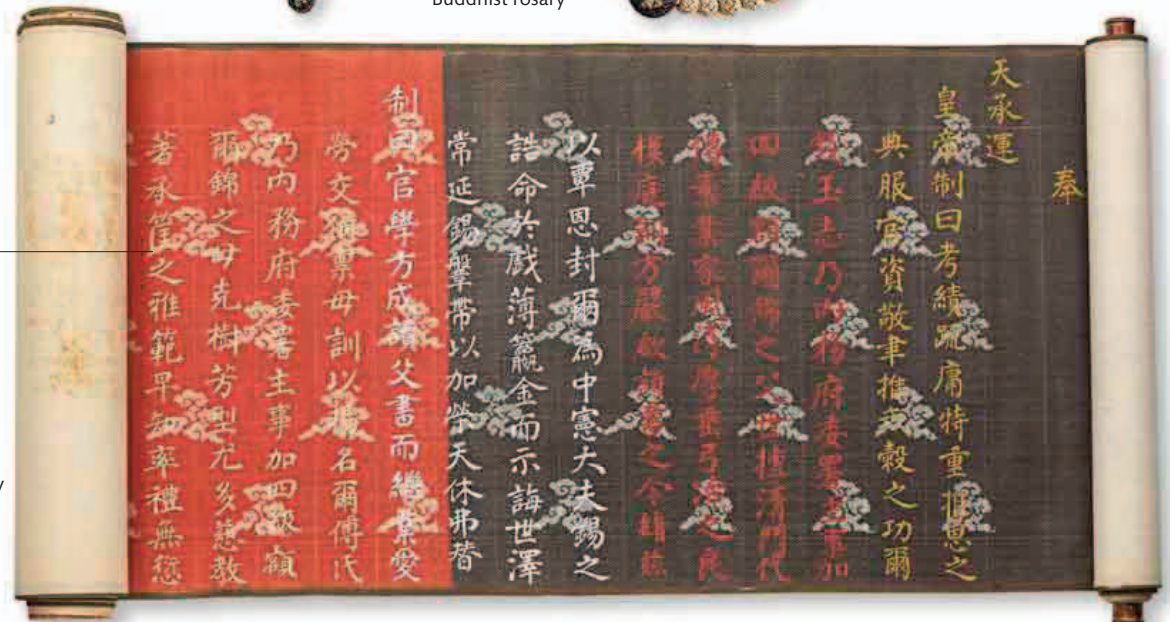 Buddhist rosary
奉
天承運
皇帝制曰考績疏庸特重推恩之
典服官資敬聿推戎穀之功爾
玉志乃內務府委署主事加
四級額爾錦之父世清門代
傳素業家弓冶之良
模庭訓方嚴啟之令緒茲
以覃恩封爾為中憲大夫錫之
誥命於戲薄籝金而示誨世澤
常延錫鞶帶以加榮天休弗替
制曰官學方成讀父書而繼業愛
勞交稟母訓以揚名爾傅氏
乃內務府委署主事加四級額
爾錦之母克樹芳型尤多慈教
著承筐之雅範早知率禮無愆